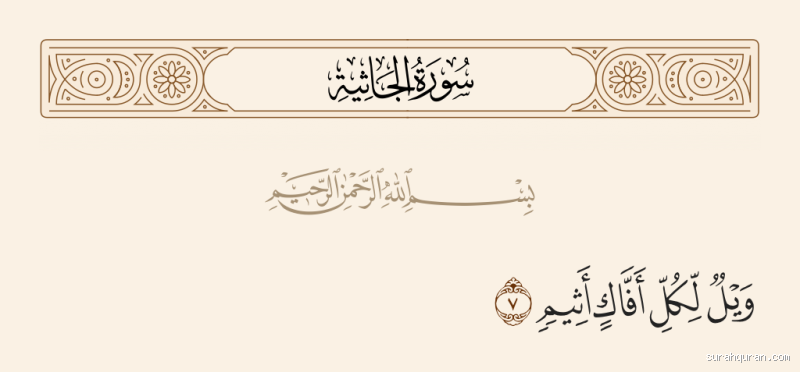 سُورَةُ الجَاثِيَةِ
بِسْمِ ٱللَّهِ ٱلرَّحْمَٰنِ ٱلرَّحِيمِ
وَيْلٌ لِّكُلِّ أَفَّاكٍ أَثِيمٍ ٧
surahquran.com